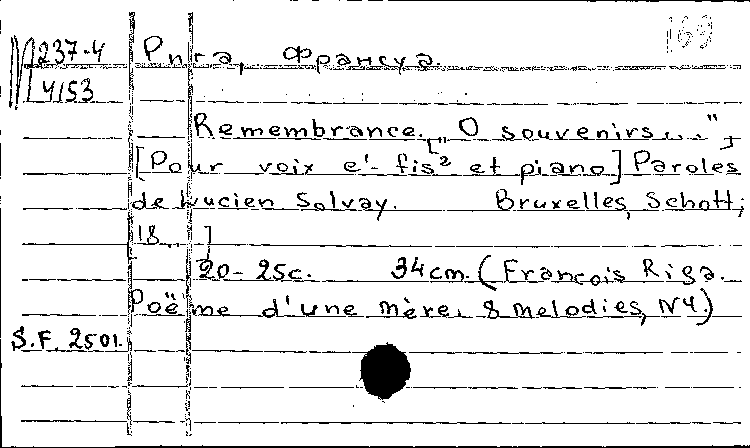 169
М237-4 Рига, Франсуа.
4153
Remembrance. ["O souvenirs..."]
[Pour voix e¹-fis² et piano] Paroles
de Lucien Solvay. Bruxelles, Schott,
[18..]
20-25c. 34cm. (Francois Riga.
Poëme d'une mère. 8 melodies, N4.)
S.F. 2501.